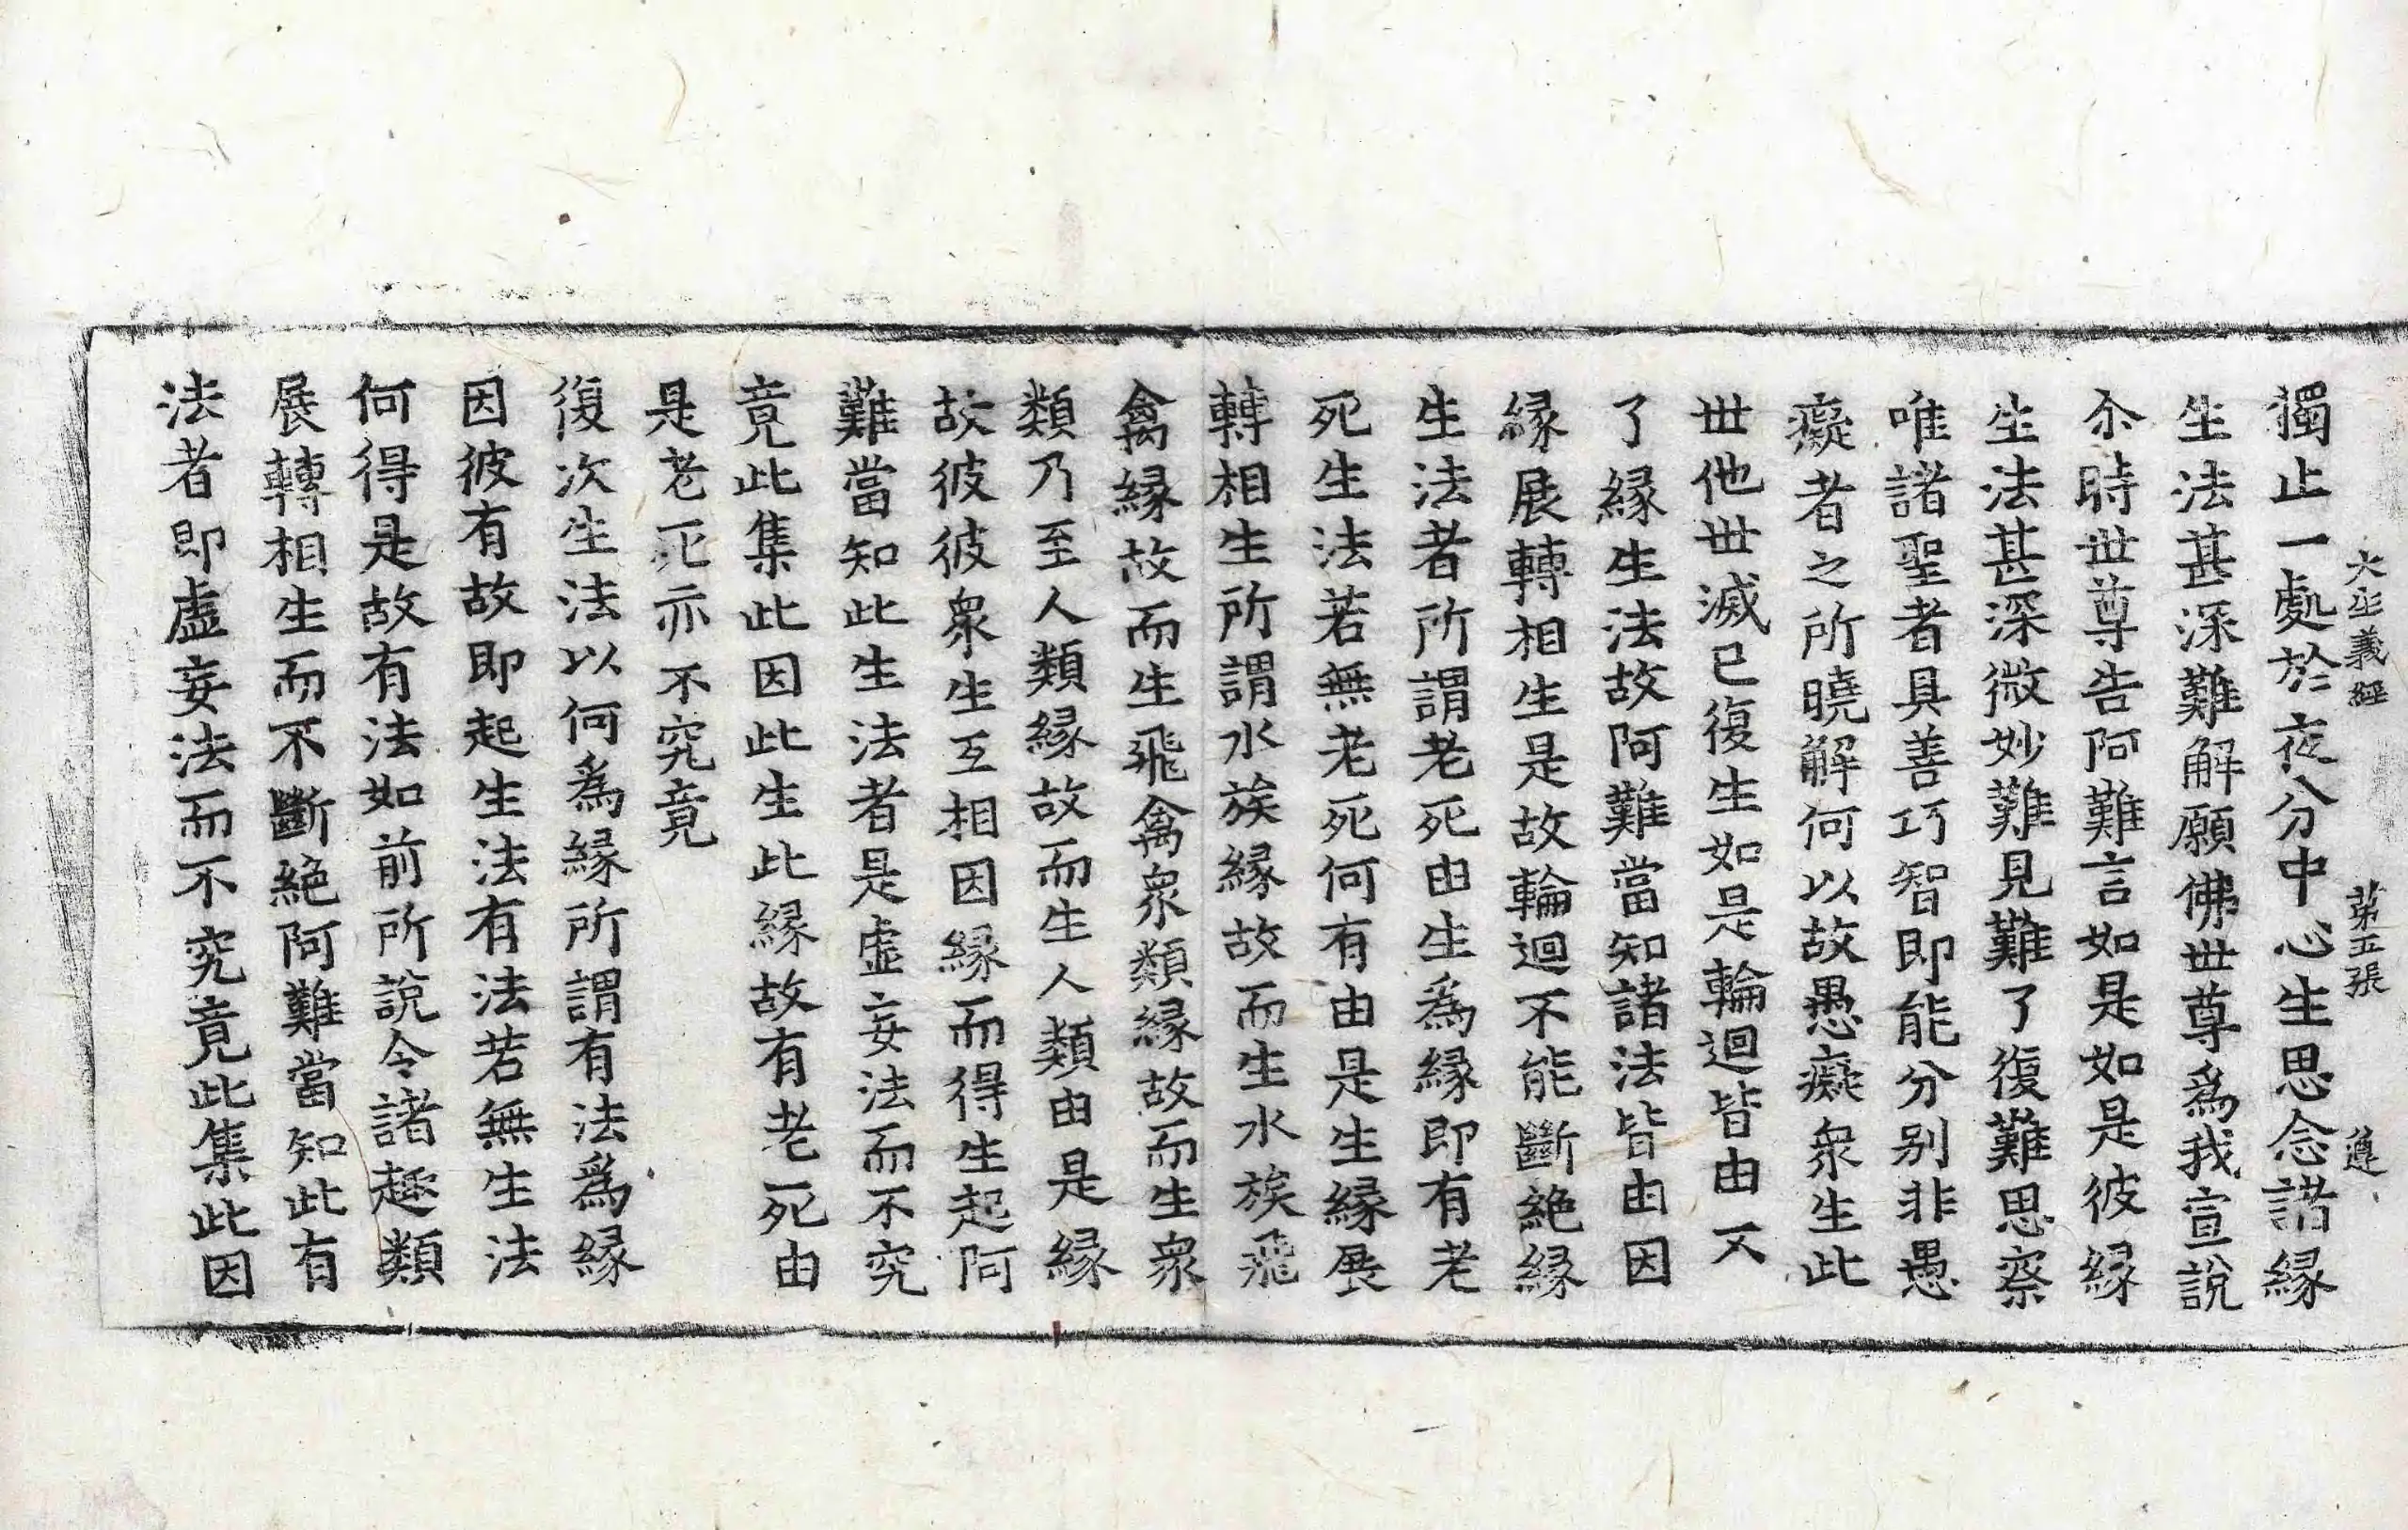 大生義經 第五張 遵
獨止一處於夜分中心生思念諸縁
生法甚深難解願佛世尊爲我宣說
尒時世尊告阿難言如是如是彼縁
生法甚深微妙難見難了復難思察
唯諸聖者具善巧智即能分别非愚
癡者之所曉解何以故愚癡衆生此
世他世滅已復生如是輪迴皆由不
了縁生法故阿難當知諸法皆由因
縁展轉相生是故輪迴不能斷絶縁
生法者所謂老死由生爲縁即有老
死生法若無老死何有由是生縁展
轉相生所謂水族縁故而生水族飛
禽縁故而生飛禽衆類縁故而生衆
類乃至人類縁故而生人類由是縁
故彼彼衆生互相因縁而得生起阿
難當知此生法者是虚妄法而不究
竟此集此因此生此縁故有老死由
是老死亦不究竟
復次生法以何爲縁所謂有法爲縁
因彼有故即起生法有法若無生法
何得是故有法如前所說令諸趣類
展轉相生而不斷絶阿難當知此有
法者即虚妄法而不究竟此集此因